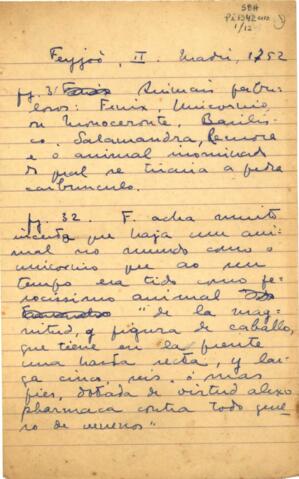 SBH
Pi 342
1/12
Feyjoó, II. Madri, 1752
pg. 31 Animais fabu-
losos: Fenix, Unicornio,
ou Monoceronte, Basilis-
co, Salamandra, Remore
e o animal inominado
do qual se tiraria a pedra
carbunculo.
pg. 32. F. acha muito
incerto que haja um ani-
mal no mundo como o
unicornio que ao seu
tempo era tido como fe-
rocissimo animal
"de la mag-
nitud, y figura de caballo,
que tiene en la frente
una hasta recta, y lar-
ga cinco, seis, ó mas
pies, dotada de virtud alexi-
pharmaca contra todo gene-
ro de venenos"